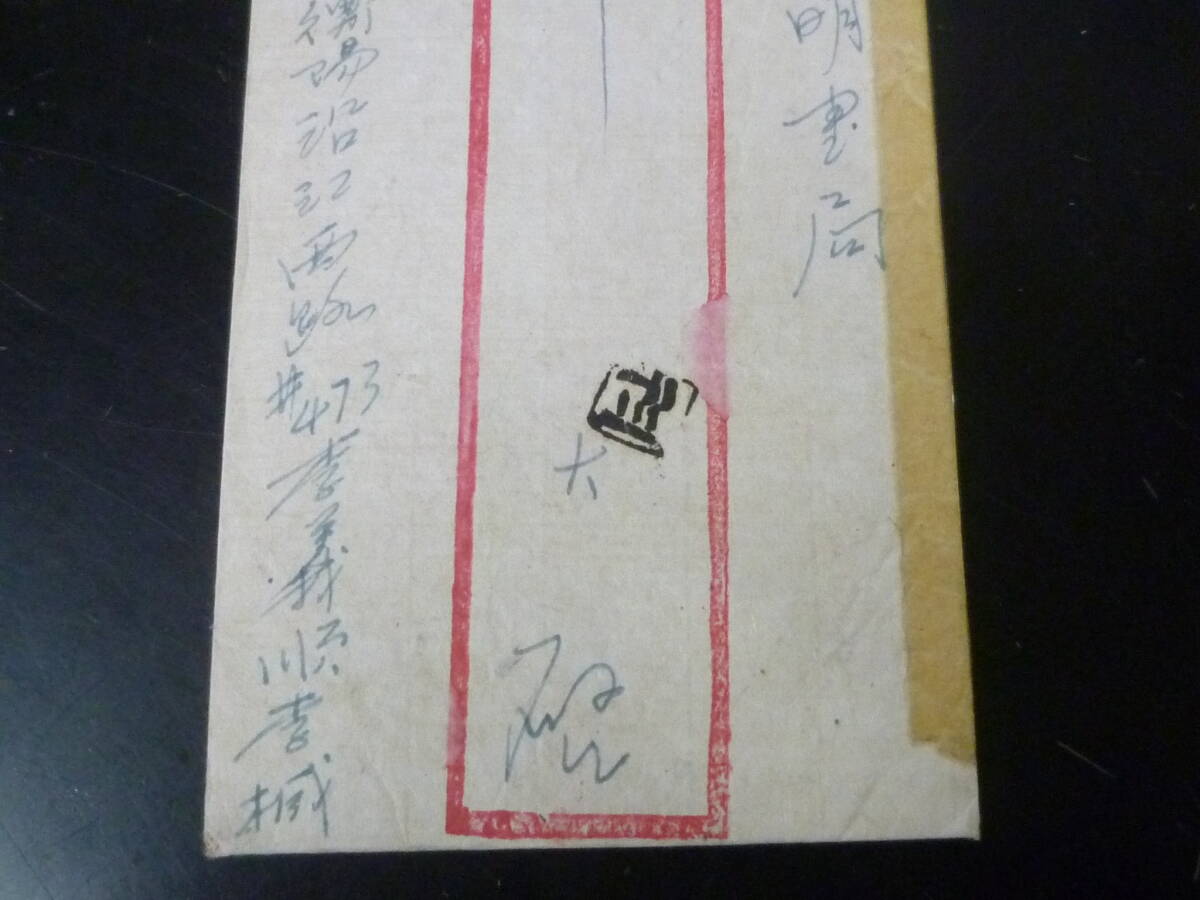 明書局
大
啟
衡陽沿江西路#473李義順李械